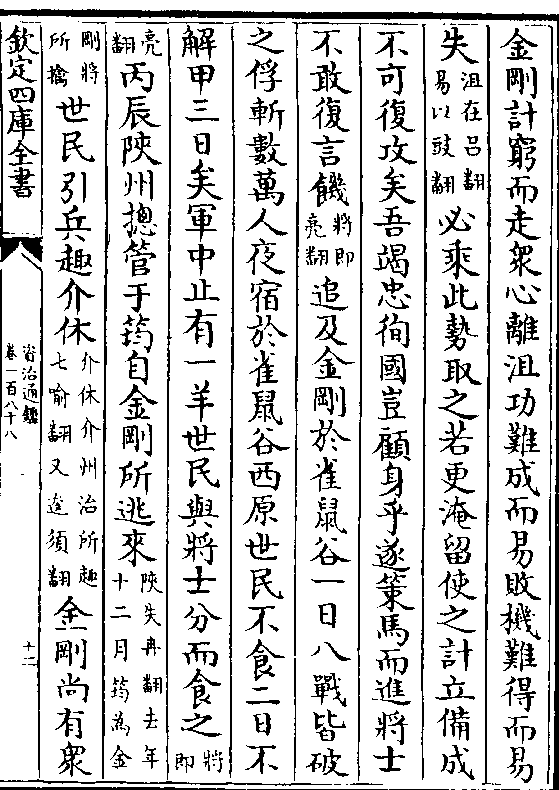 金剛計窮而走衆心離沮功難成而易敗機難得而易
失沮在吕翻易以豉翻必乘此勢取之若更淹留使之計立備成
不可復攻矣吾竭忠徇國豈顧身乎遂策馬而進將士
不敢復言饑將即亮翻追及金剛於雀鼠谷一日八戰皆破
之俘斬數萬人夜宿於雀鼠谷西原世民不食二日不
解甲三日矣軍中止有一羊世民與將士分而食之將即
亮翻丙辰陜州摠管于筠自金剛所逃來陜失冉翻去年十二月筠為金
剛將所擒世民引兵趣介休介休介州治所趣七喻翻又逡須翻金剛尚有衆
欽定四庫全書
資治通鑑
卷一百八十八
十二